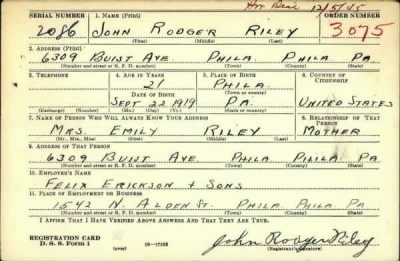 Hon Disc 12/5/45
SERIAL NUMBER 1. NAME (Print) ORDER NUMBER
2086 JOHN RODGER RILEY 3075
(First) (Middle) (Last)
2. ADDRESS (Print)
6309 BUIST AVE. PHILA. PHILA PA
(Number and street or R. F. D. number) (Town) (County) (State)
3. TELEPHONE 4. AGE IN YEARS 5. PLACE OF BIRTH 6. COUNTRY OF CITIZENSHIP
21 PHILA.
DATE OF BIRTH (Town or county)
SEPT. 22 1919 PA. UNITED STATES
(Exchange) (Number) (Mo.) (Day) (Yr.) (State or country)
7. NAME OF PERSON WHO WILL ALWAYS KNOW YOUR ADDRESS 8. RELATIONSHIP OF THAT PERSON
MRS. EMILY RILEY MOTHER
(Mr., Mrs., Miss) (First) (Middle) (Last)
9. ADDRESS OF THAT PERSON
6309 BUIST AVE PHILA PILILA. PA
(Number and street or R. F. D. number) (Town) (County) (State)
10. EMPLOYER'S NAME
FELIX ERICKSON + SONS
11. PLACE OF EMPLOYMENT OR BUSINESS
1542 N. ALDEN ST. PHILA. PHILA. PA
(Number and street or R. F. D. number) (Town) (County) (State)
I AFFIRM THAT I HAVE VERIFIED ABOVE ANSWERS AND THAT THEY ARE TRUE.
REGISTRATION CARD
D. S. S. Form 1 (over) 16—17105 John Rodger Riley
(Registrant's signature)